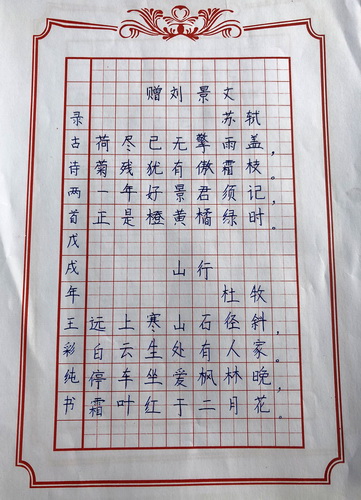 赠刘景文
苏轼
荷尽已无擎雨盖，
菊残犹有傲霜枝。
一年好景君须记，
正是橙黄橘绿时。
山行
杜牧
远上寒山石径斜，
白云生处有人家。
停车坐爱枫林晚，
霜叶红于二月花。
录古诗两首戊戌年王彩纯书